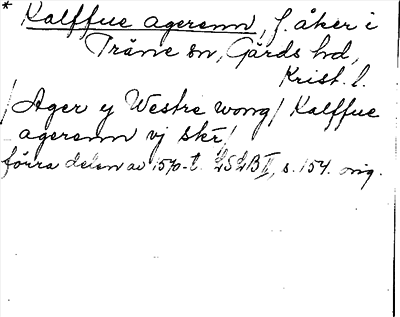 * Kalffue agerenn, f. åker i
Träne sn, Gärds hd,
Krist. l.
/Ager y Westre wong/ Kalffue
agerenn vj skr̄/
förra delen av 1570-t. LSLB II, s. 154. orig.